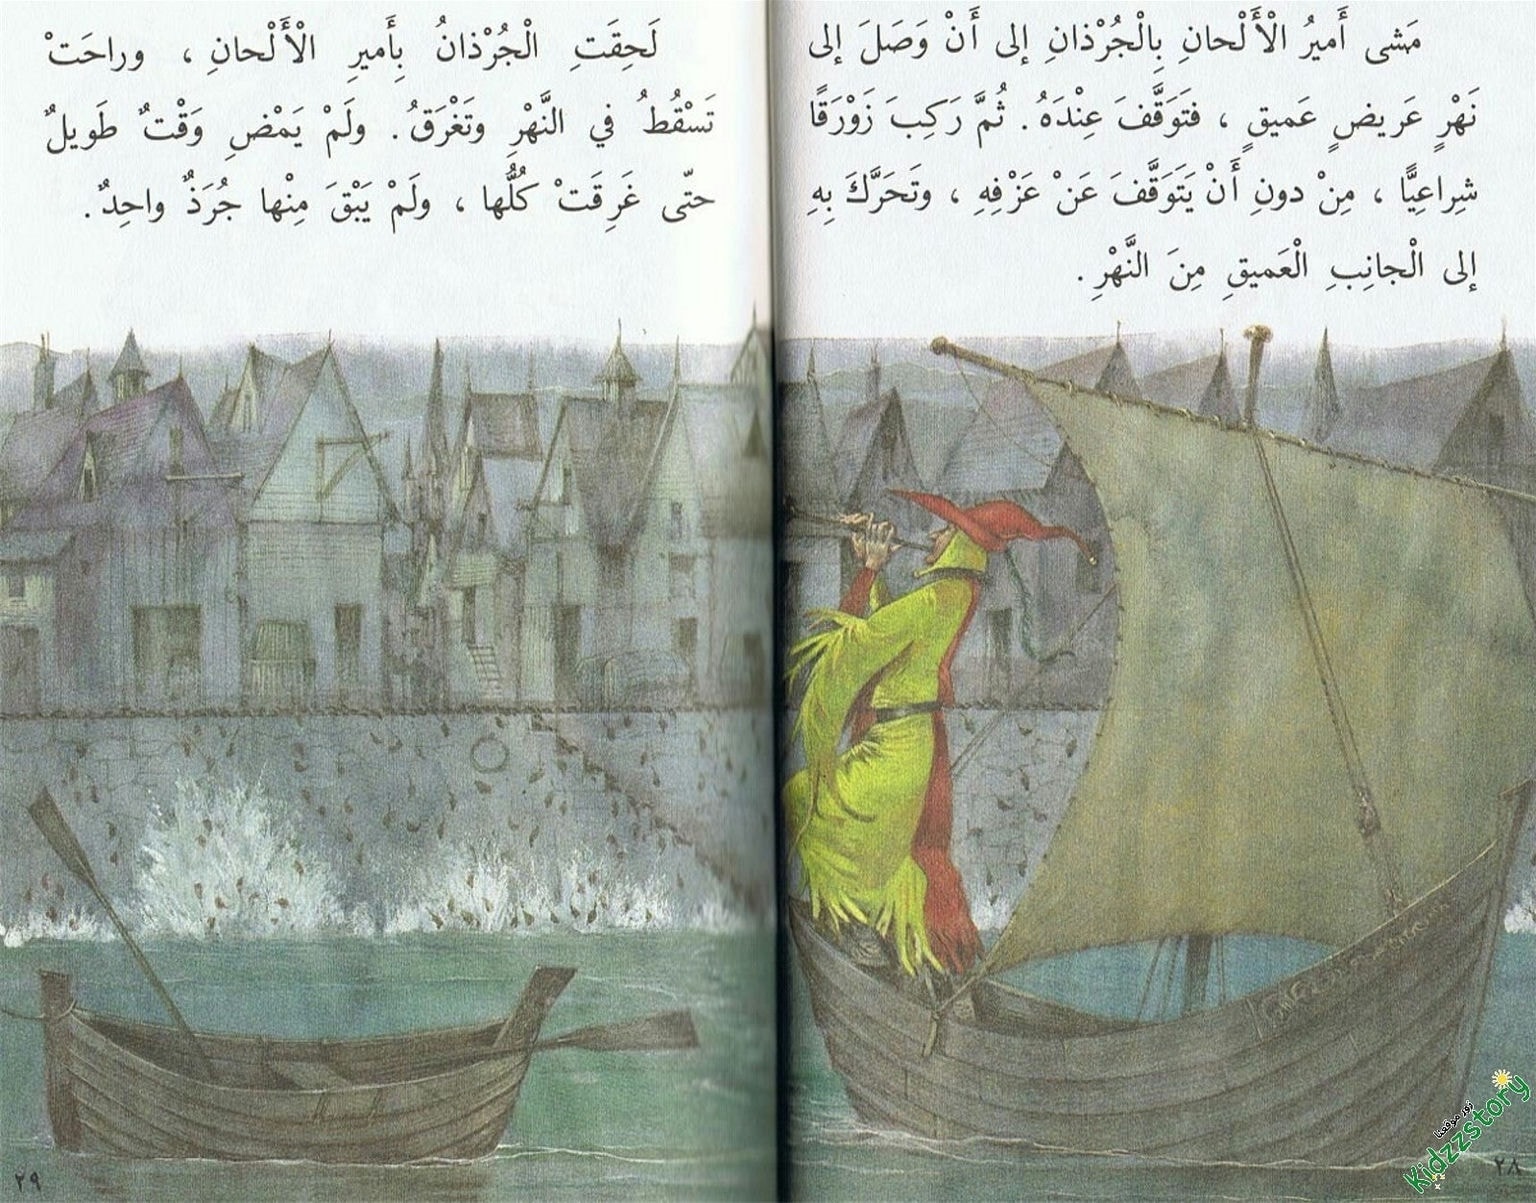 مَشى أَميرُ الْأَلْحانِ بِالْجُرْذانِ إلى أَنْ وَصَلَ إلى
نَهْرٍ عَريضٍ عَميقٍ ، فتَوَقَّفَ عِنْدَهُ . ثُمَّ رَكِبَ زَوْرَقًا
شِراعِيًّا ، مِنْ دونِ أَنْ يَتَوَقَّفَ عَنْ عَزْفِهِ ، وتَحَرَّكَ بِهِ
إلى الْجانِبِ الْعَميقِ مِنَ النَّهْرِ .
٢٨
زور موقعنا
Kidzzstory
لَحِقَتِ الْجُرْذانُ بِأَميرِ الْأَلْحانِ ، وراحَتْ
تَسْقُطُ في النَّهْرِ وتَغْرَقُ . ولَمْ يَمْضِ وَقْتٌ طَويلٌ
حتّى غَرِقَتْ كُلُّها ، ولَمْ يَبْقَ مِنْها جُرَذٌ واحِدٌ .
٢٩